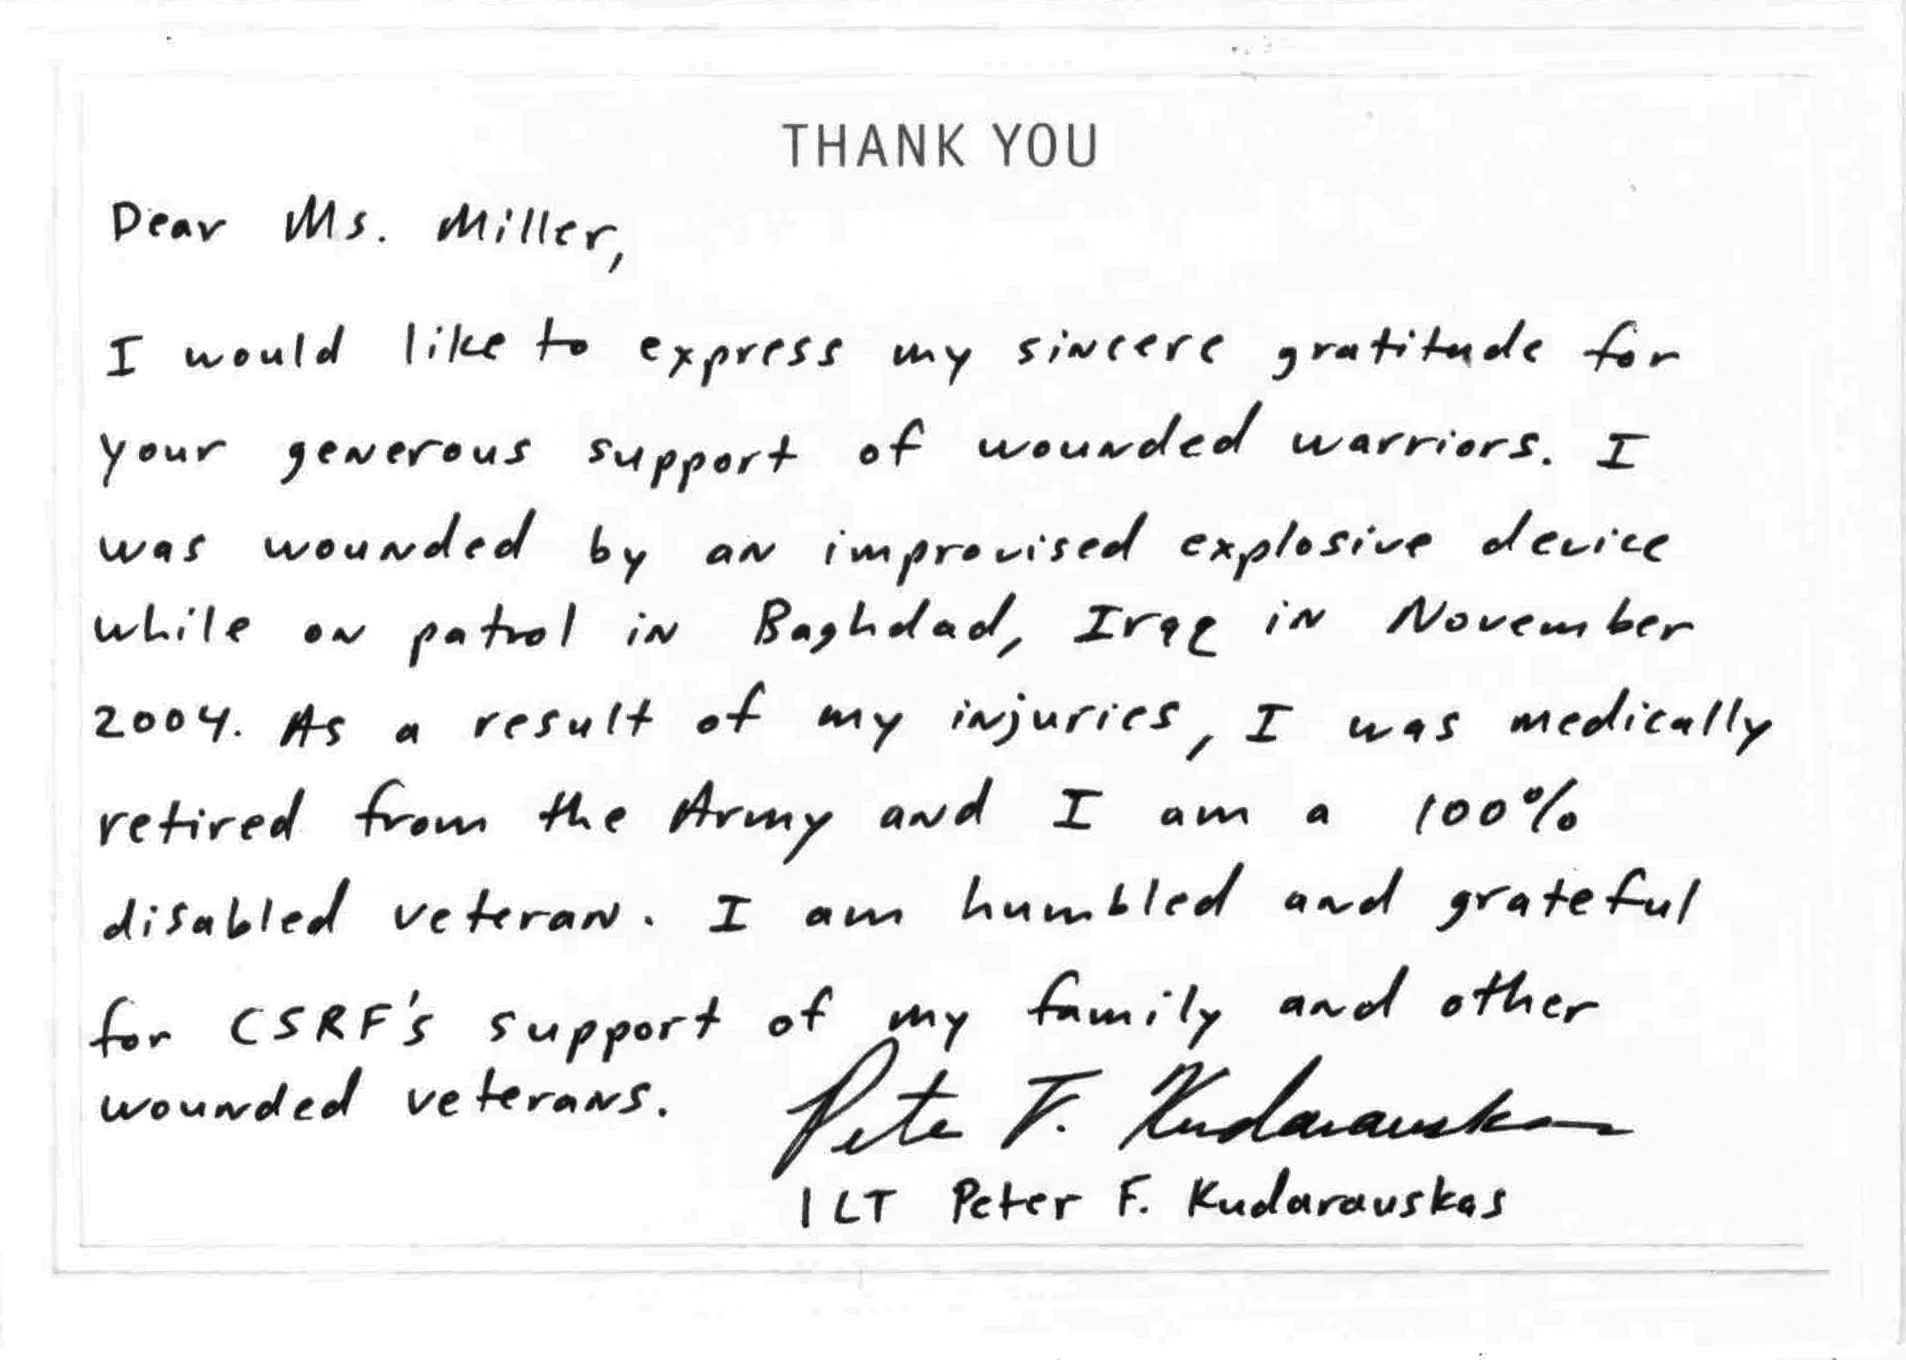 THANK YOU
Dear Ms. Miller,
I would like to express my sincere gratitude for
your generous support of wounded warriors. I
was wounded by an improvised explosive device
while on patrol in Baghdad, Iraq in November
2004. As a result of my injuries, I was medically
retired from the Army and I am a 100%
disabled veteran. I am humbled and grateful
for CSRF's support of my family and other
wounded veterans.
Peter F. Kudarauskas
1LT Peter F. Kudarauskas